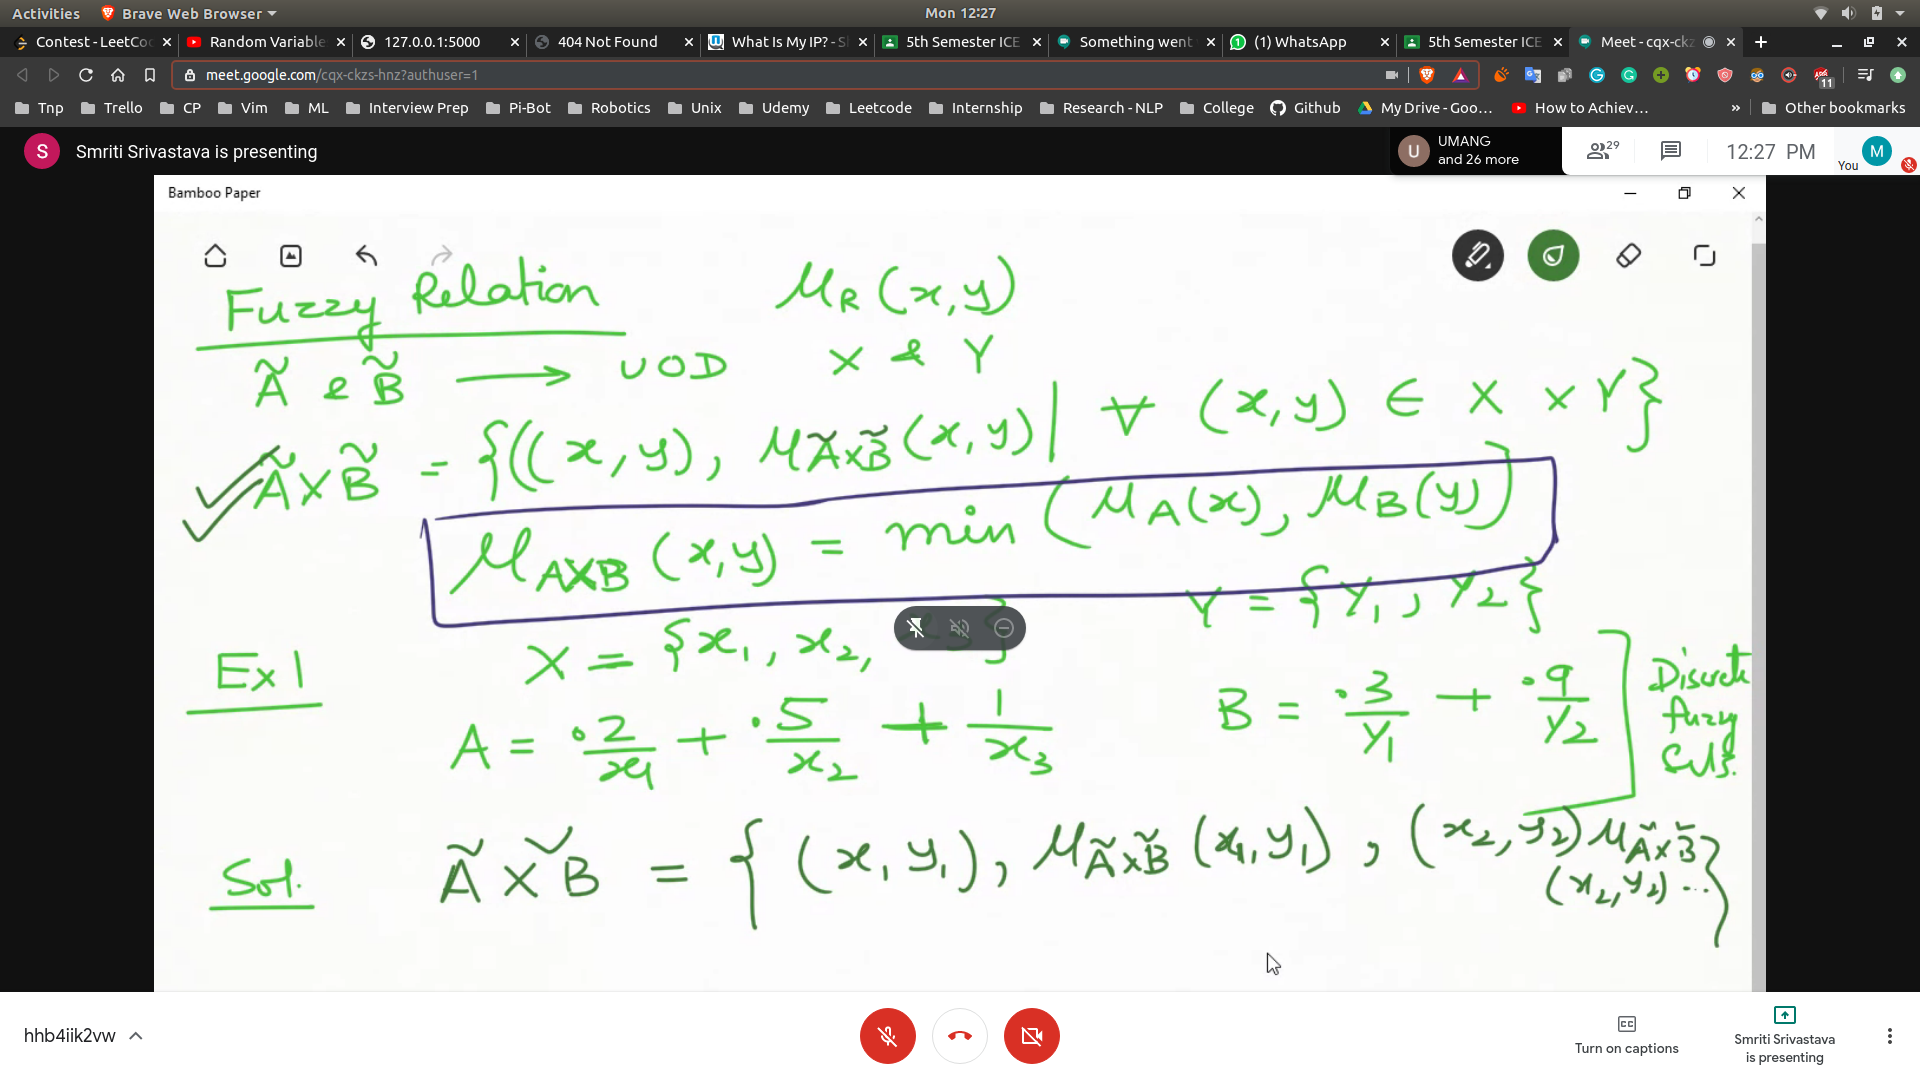 Activities Brave Web Browser Mon 12:27
Contest - LeetCo Random Variable 127.0.0.1:5000 404 Not Found What Is My IP? - S 5th Semester ICE Something went (1) WhatsApp 5th Semester ICE Meet - cqx-ckz
meet.google.com/cqx-ckzs-hnz?authuser=1 11
Tnp Trello CP Vim ML Interview Prep Pi-Bot Robotics Unix Udemy Leetcode Internship Research - NLP College Github My Drive - Goo... How to Achiev... » Other bookmarks
S Smriti Srivastava is presenting
U UMANG and 26 more 29 12:27 PM You M
Bamboo Paper
Fuzzy Relation μR (x,y)
Ã & B̃ → UOD X & Y
Ã×B̃ = {((x,y), μÃ×B̃(x,y)| ∀ (x,y) ∈ X × Y}
μA×B (x,y) = min (μA(x), μB(y))
Ex 1 X = {x1, x2, x3} Y = {Y1, Y2}
A = .2/x1 + .5/x2 + 1/x3 B = .3/Y1 + .9/Y2 Discrete fuzzy
Sol. Ã × B̃ = { (x, y1), μÃ×B̃ (x1,y1), (x2, y2) μÃ×B̃
(x2, y2) ...}
hhb4iik2vw
Turn on captions
Smriti Srivastava
is presenting